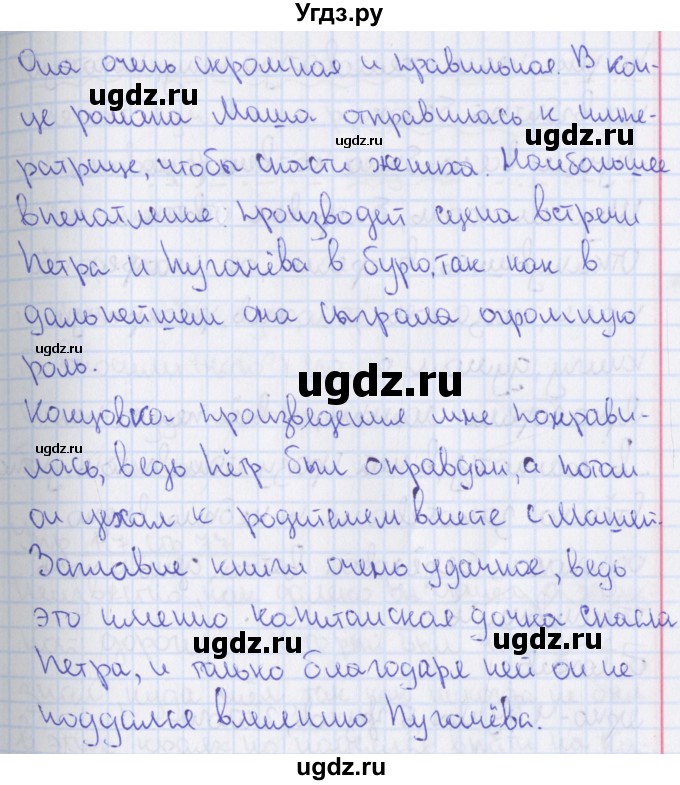 Угдз.ру
Она очень скромная и правильная. В кон-
це романа Маша отправилась к импе-
ратрице, чтобы спасти жениха. Наибольшее
впечатление производит сцена встречи
Петра и Пугачёва в бурю, так как в
дальнейшем она сыграла огромную
роль.
Концовка произведения мне понрави-
лась, ведь Пётр был оправдан, а потом
он уехал к родителем вместе с Машей.
Заглавие книги очень удачное, ведь
это именно капитанская дочка спасла
Петра, и только благодаря ней он не
поддался влиянию Пугачёва.
ugdz.ru
ugdz.ru
ugdz.ru
ugdz.ru
ugdz.ru
ugdz.ru
ugdz.ru
ugdz.ru
ugdz.ru
ugdz.ru
ugdz.ru